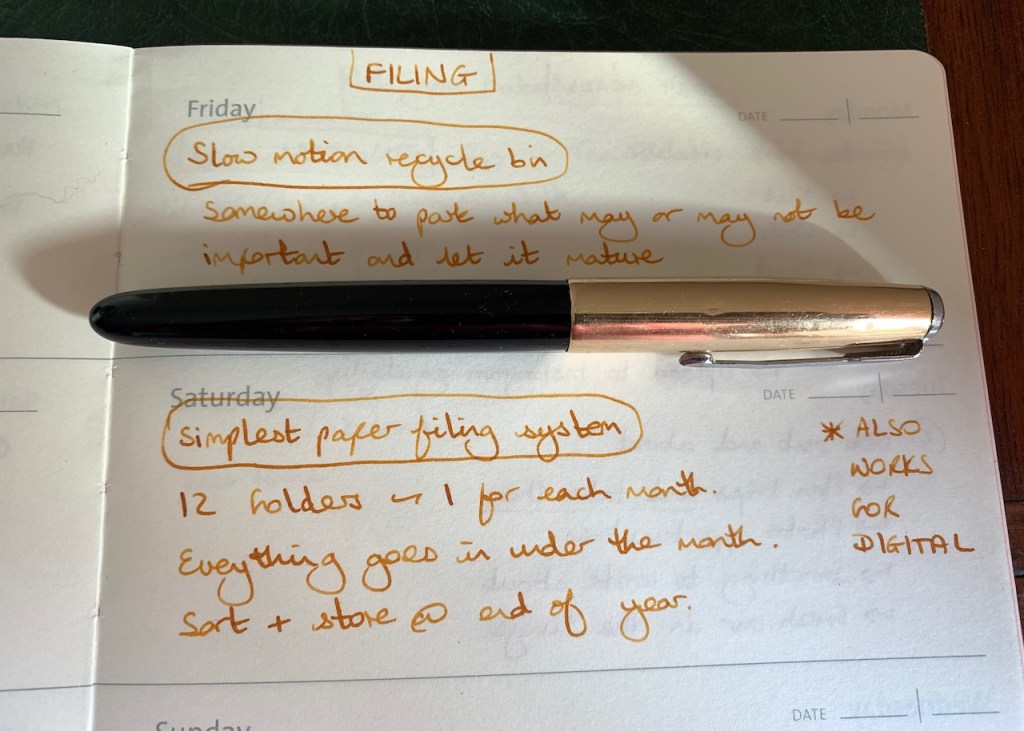 FILING
Friday
DATE
Slow motion recycle bin
Somewhere to park what may or may not be
important and let it mature
Saturday
DATE
Simplest paper filing system
* ALSO
WORKS
FOR
DIGITAL
12 folders → 1 for each month.
Eveything goes in under the month.
Sort + store @ end of year.
Sunday
DATE